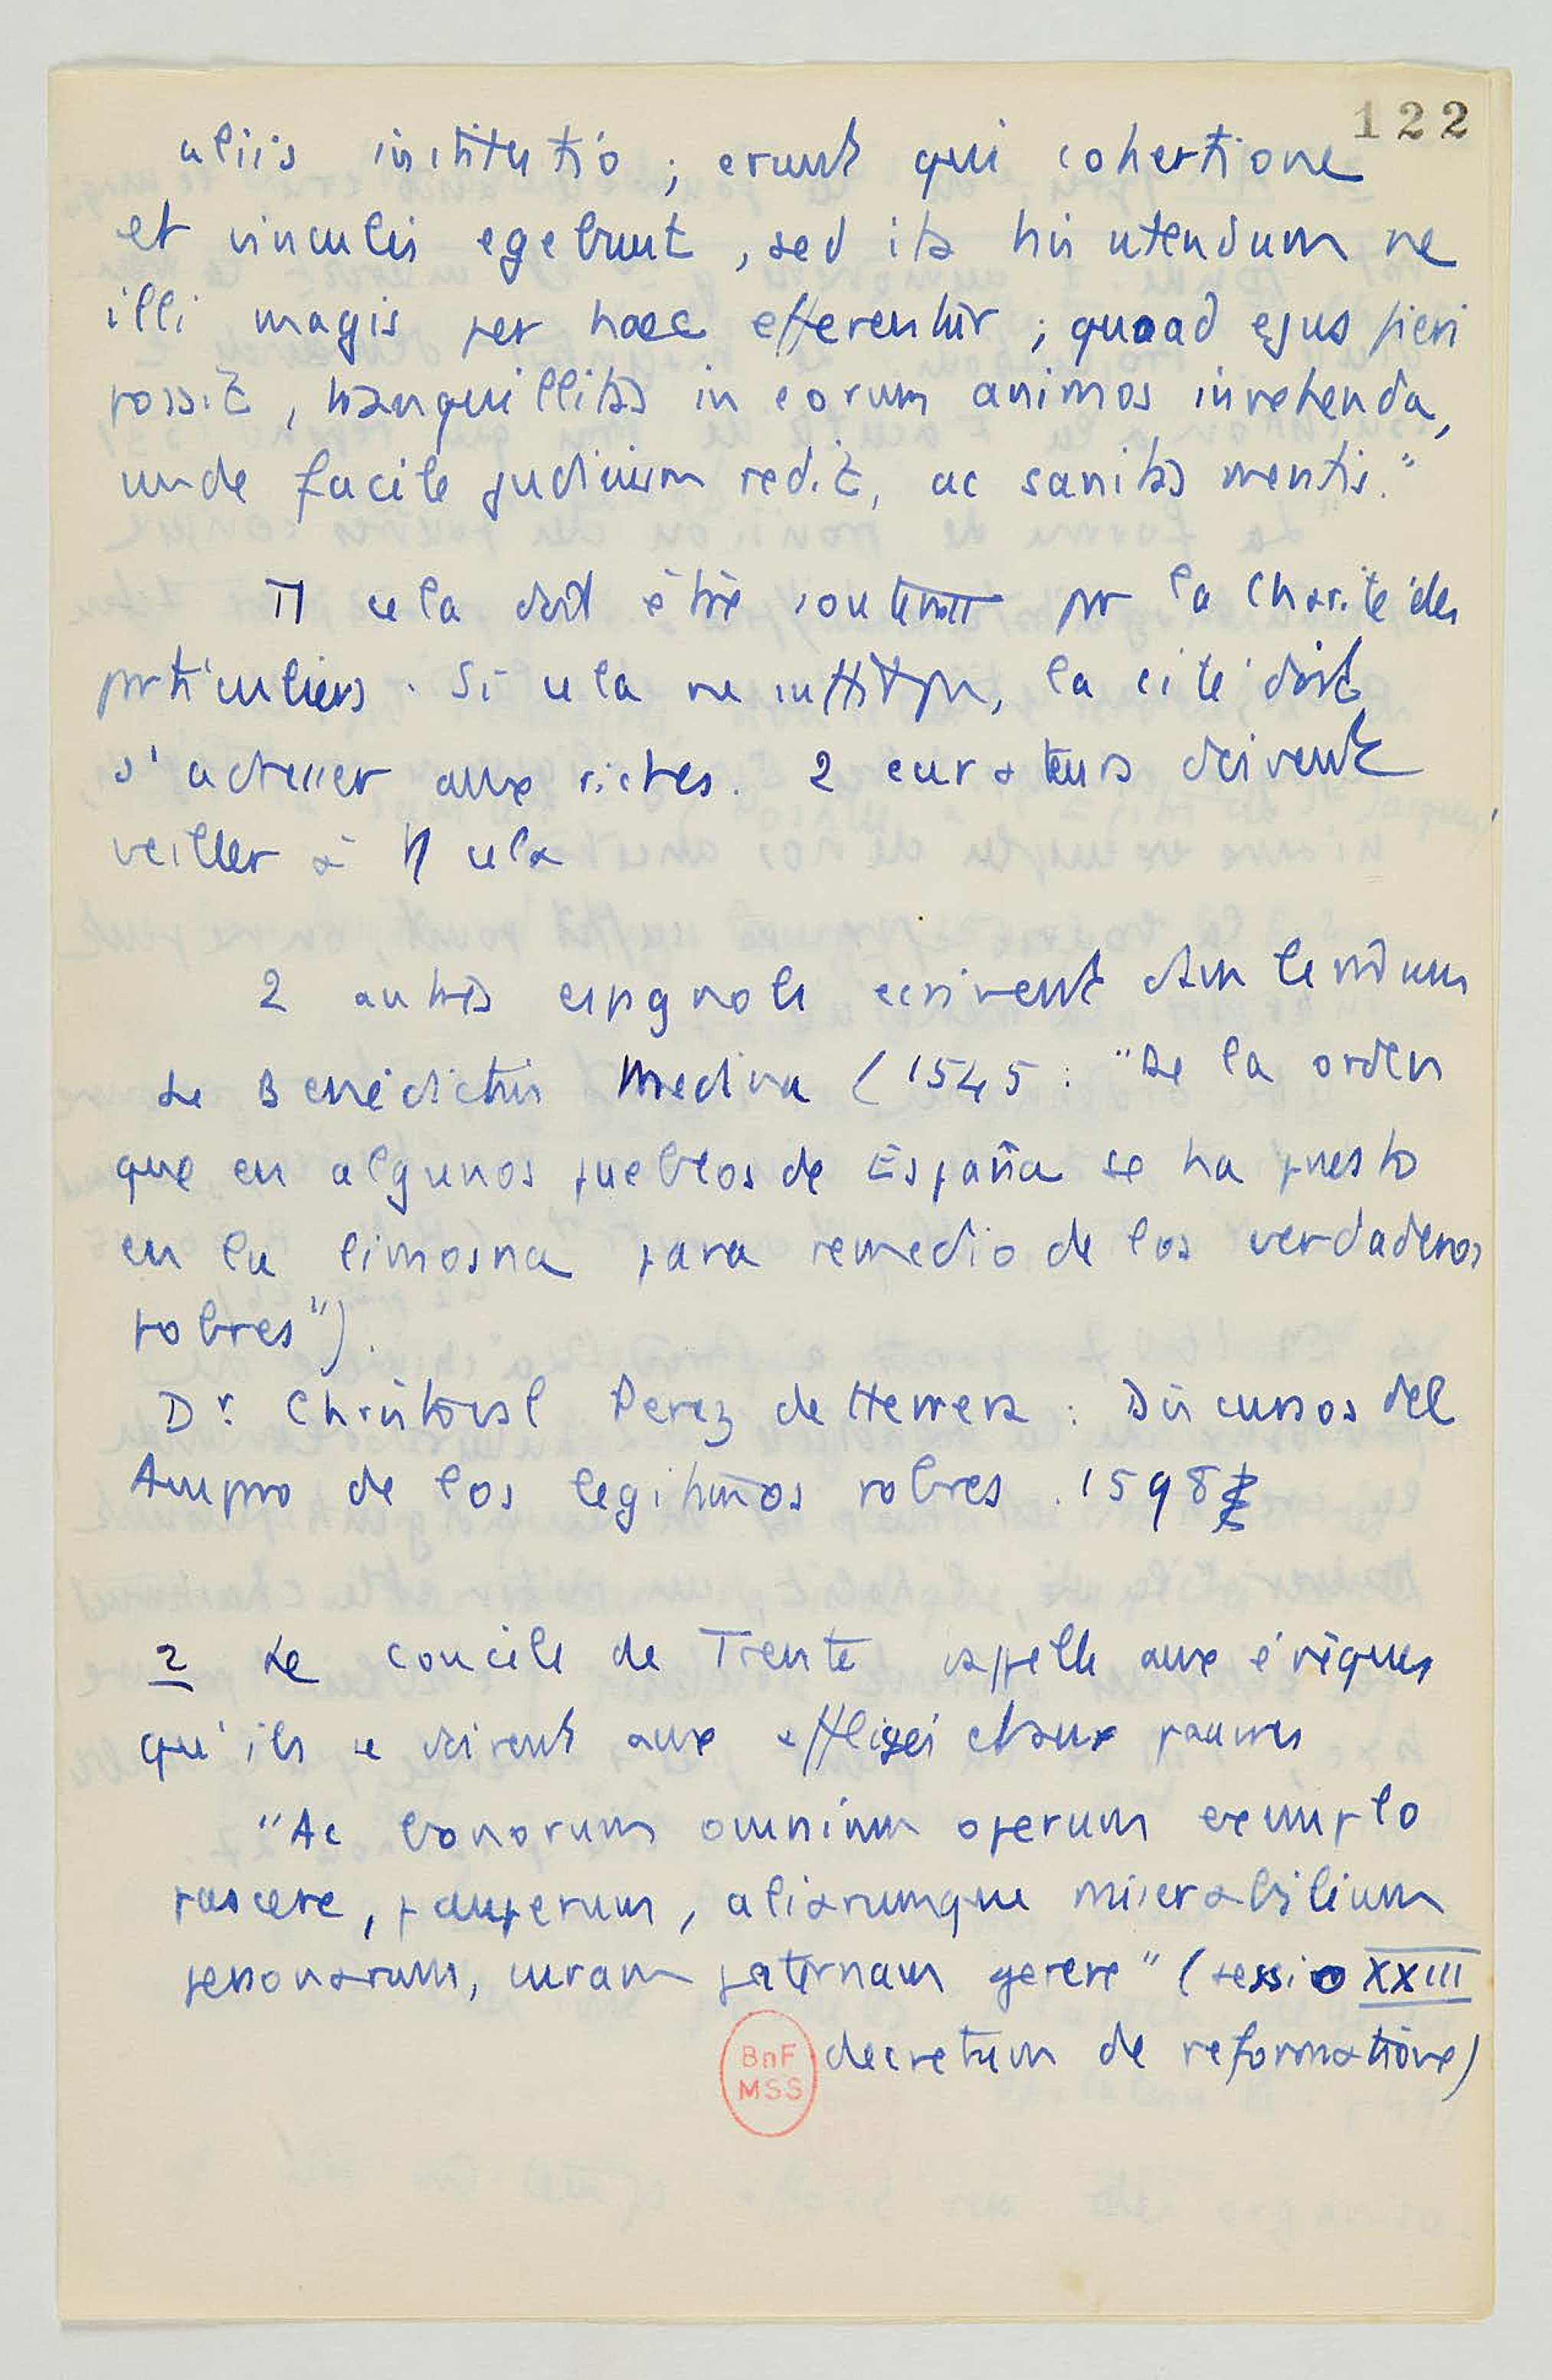 122
aliis institutio ; erunt qui cohertione
et vinculis egebunt, sed ita his utendum ne
illi magis per haec efferentur ; quoad ejus fieri
possit, tranquillitas in eorum animos invehenda,
unde facile judicium redit, ac sanitas mentis."
Tt cela doit être soutenu par la charité des
particuliers. Si cela ne suffit pas, la cité doit
s'adresser aux riches. 2 curateurs doivent
veiller à tt cela
2 autres espagnols écrivent dans le même sens
Le Bénédictin Medina (1545 : "De la orden
que en algunos pueblos de España se ha puesto
en la limosna para remedio de los verdaderos
pobres").
Dr. Christoval Perez de Herrera : Discursos del
Amparo de los legitimos pobres. 1598
2 Le concile de Trente rappelle aux évêques
qu'ils se doivent aux affligés et aux pauvres
"Ac bonorum omnium operum exemplo
pascere, pauperum, aliarumque miserabilium
personarum, curam paternam gerere" (sessio XXIII
decretum de reformatione)
BnF
MSS